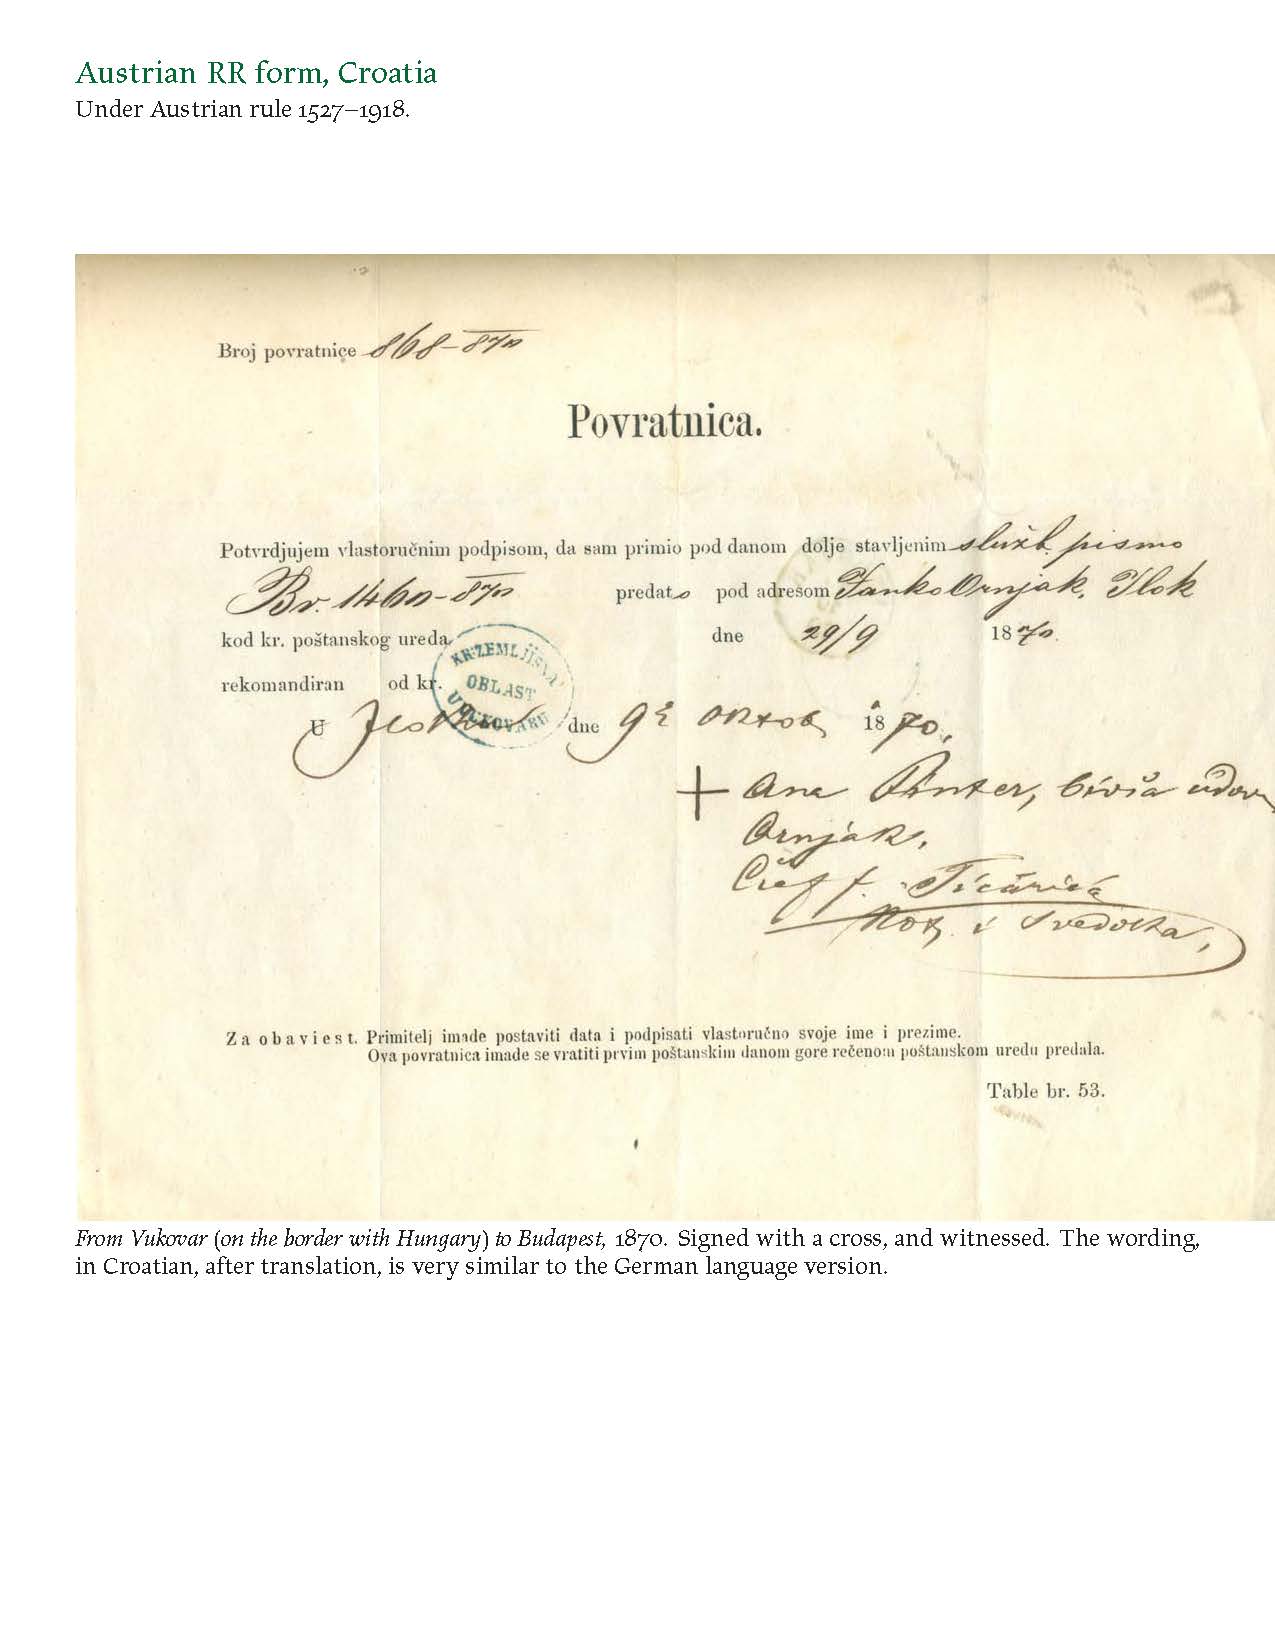 Austrian RR form, Croatia
Under Austrian rule 1527–1918.
Broj povratnice 868–870
Povratnica.
Potvrdjujem vlastoručnim podpisom, da sam primio pod danom dolje stavljenim služb. pismo
Br. 1460–870 predato pod adresom Janko Ornjak, Ilok
kod kr. poštanskog ureda dne 29/9 1870.
KR. ZEMLJIŠNA OBLAST U VUKOVARU
rekomandiran od kr.
U dne 9 Oktob 1870.
+ Ana Pinter, bivša udov
Ornjak.
Not. i Svedoka,
Za obaviest. Primitelj imade postaviti data i podpisati vlastoručno svoje ime i prezime.
Ova povratnica imade se vratiti prvim poštanskim danom gore rečenom poštanskom uredu predala.
Table br. 53.
From Vukovar (on the border with Hungary) to Budapest, 1870. Signed with a cross, and witnessed. The wording,
in Croatian, after translation, is very similar to the German language version.